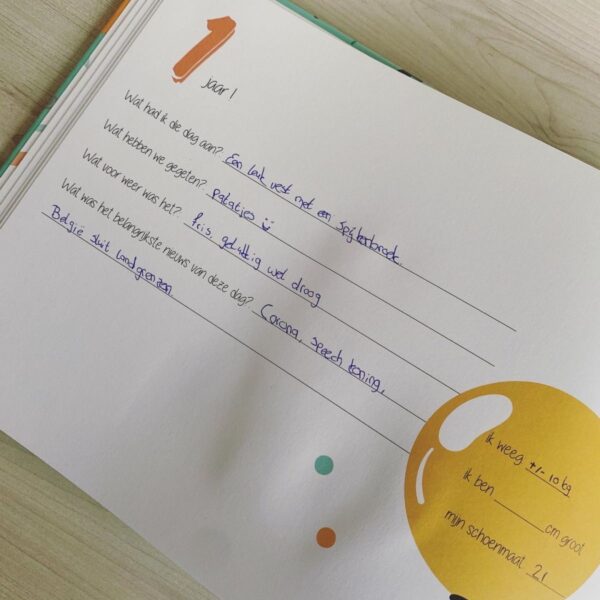 1
jaar 1
Wat had ik die dag aan? Een leuk vest met een spijkerbroek
Wat hebben we gegeten? patatjes
Wat voor weer was het? Fris, gelukkig wel droog
Wat was het belangrijkste nieuws van deze dag? Corona, speech koning,
België sluit landgrenzen.
ik weeg +/- 10 kg
ik ben cm groot
mijn schoenmaat 21